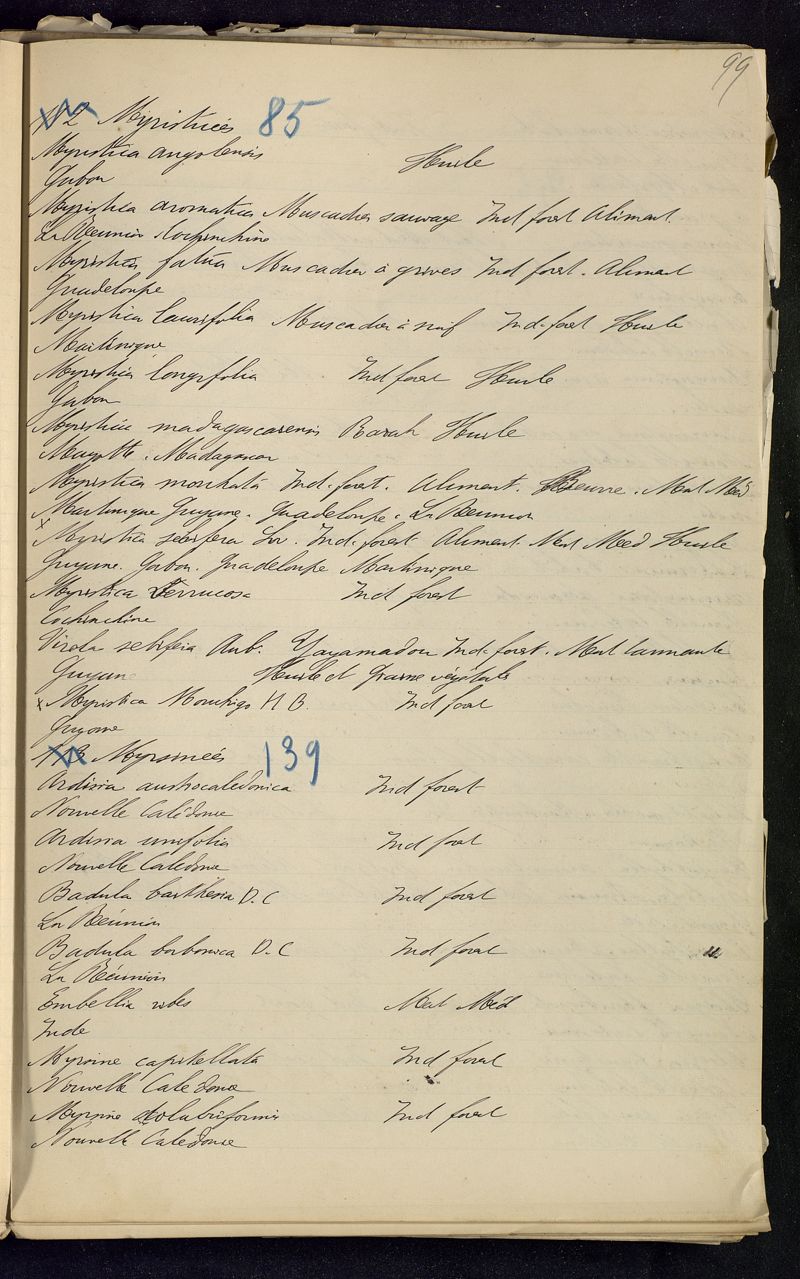 99
Myristicées 85
Myristica angolensis Huile
Gabon
Myristica aromatica Muscadier sauvage Ind forest Aliment.
La Réunion Cochinchine
Myristica fatua Muscadier à grives Ind forest. Aliment
Guadeloupe
Myristica laurifolia Muscadier à suif Ind. forest Huile
Martinique
Myristica longifolia Ind forest Huile
Gabon
Myristica madagascarensis Rarah Huile
Mayotte. Madagascar
Myristica moschata Ind. forest. Aliment. Beurre. Mat Méd
Martinique Guyane. Guadeloupe. La Réunion
x Myristica sebifera Sw. Ind. forest Aliment. Mat Med Huile
Guyane. Gabon. Guadeloupe Martinique
Myristica Verrucosa Ind forest
Cochinchine
Virola sebifera Aub. Yayamadou Ind. forest. Mat tannante
Guyane Huile et Graisse végétale
x Myristica H B. Ind forest
Guyane
Myrsineés 139
Ardisia austrocaledonica Ind forest
Nouvelle Calédonie
Ardisia Ind forest
Nouvelle Calédonie
Badula barthesia D. C Ind forest
La Réunion
Badula borbonica D. C Ind forest
La Réunion
Embellia ribes Mat Méd
Inde
Myrsine capitellata Ind forest
Nouvelle Calédonie
Myrsine Ind forest
Nouvelle Calédonie